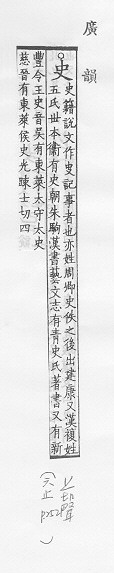 廣韻
史
史籍說文作㕜記事者也亦姓周卿史佚之後出建康又漢複姓
五氏世本衛有史朝朱駒漢書藝文志有青史氏著書又有新
豐令王史音吳有東萊太守太史
慈晉有東萊侯史光踈士切四
(六止 p252)